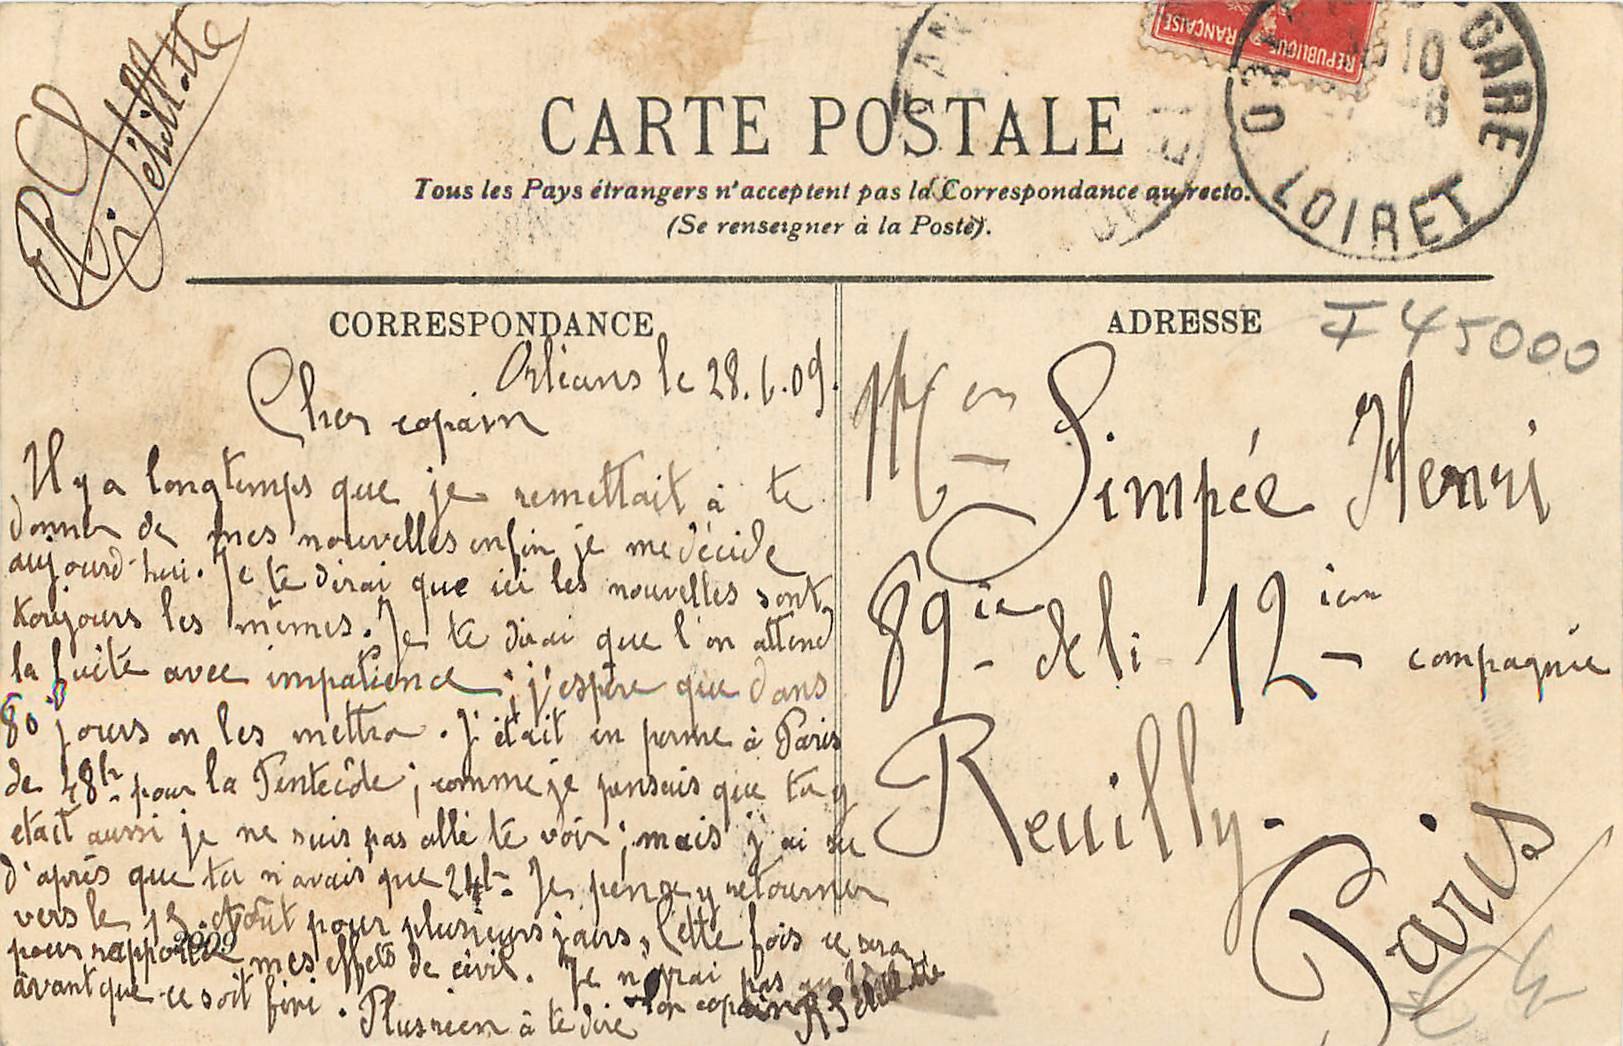 CARTE POSTALE
Tous les Pays étrangers n'acceptent pas la Correspondance au recto.
(Se renseigner à la Poste).
REPUBLIQUE FRANÇAISE
GARE
LOIRET
CORRESPONDANCE
Orléans le 28.6.09.
Cher copain
Il y a longtemps que je remettait à te
donner de mes nouvelles enfin je me décide
aujourd'hui. Je te dirai que ici les nouvelles sont
toujours les mêmes. Je te dirai que l'on attend
la fuite avec impatience ; j'espère que dans
80 jours on les mettra. J'était en perme à Paris
de 48h pour la Pentecôte ; comme je pensais que tu y
etait aussi je ne suis pas allé te voir ; mais j'ai su
d'après que tu n'avais que 24h. Je pense y retourner
vers le 15 Août pour plusieurs jours, Cette fois ce sera
pour rapporter mes effets de civil. Je n'irai pas
avant que ce soit fini. Plus rien à te dire
Ton copain
ADRESSE
I 45000
Mon Simpée Henri
89ie de li 12ieme compagnie
Reuilly.
Paris